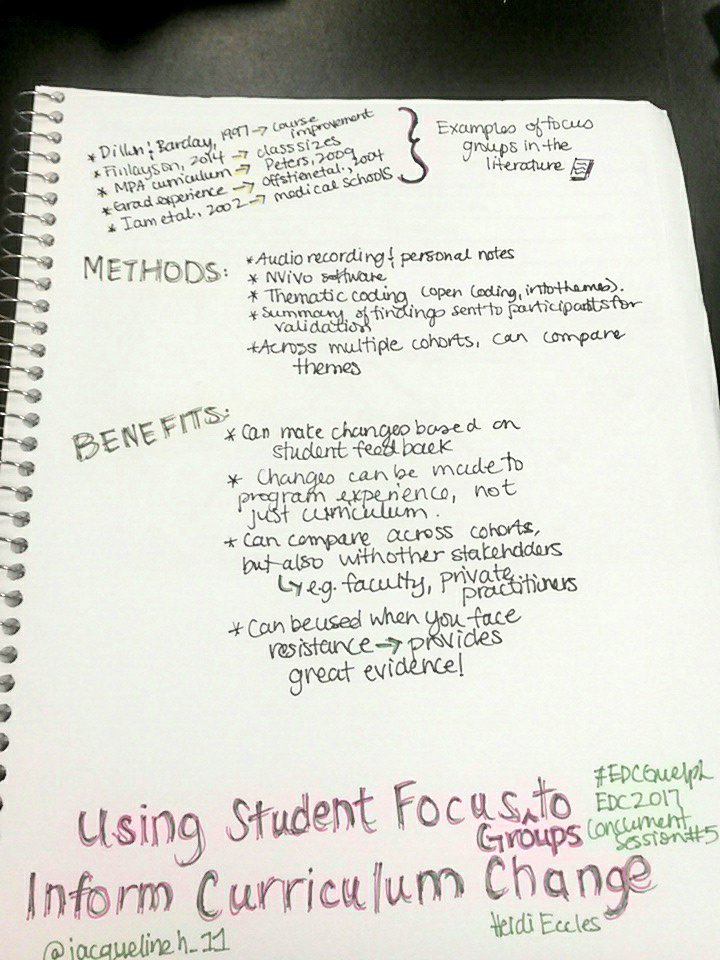 * Dillon & Barclay, 1997 → course improvement
* Finlayson, 2014 → class sizes
* MPA curriculum → Peters, 2009
* Grad experience → offstienetal., 2004
* Iam et al., 2002 → medical schools
Examples of focus
groups in the
literature
METHODS:
* Audio recording & personal notes
* NVivo software
* Thematic coding (open coding, into themes).
* Summary of findings sent to participants for
validation
* Across multiple cohorts, can compare
themes
BENEFITS:
* Can make changes based on
student feedback
* Changes can be made to
program experience, not
just curriculum.
* Can compare across cohorts,
but also with other stakeholders
↳ e.g. faculty, private
practitioners
* Can be used when you face
resistance → provides
great evidence!
Using Student Focus Groups to
Inform Curriculum Change
#EDCGuelph
EDC2017
Concurrent
session #5
Heidi Eccles
@jacquelineh_11